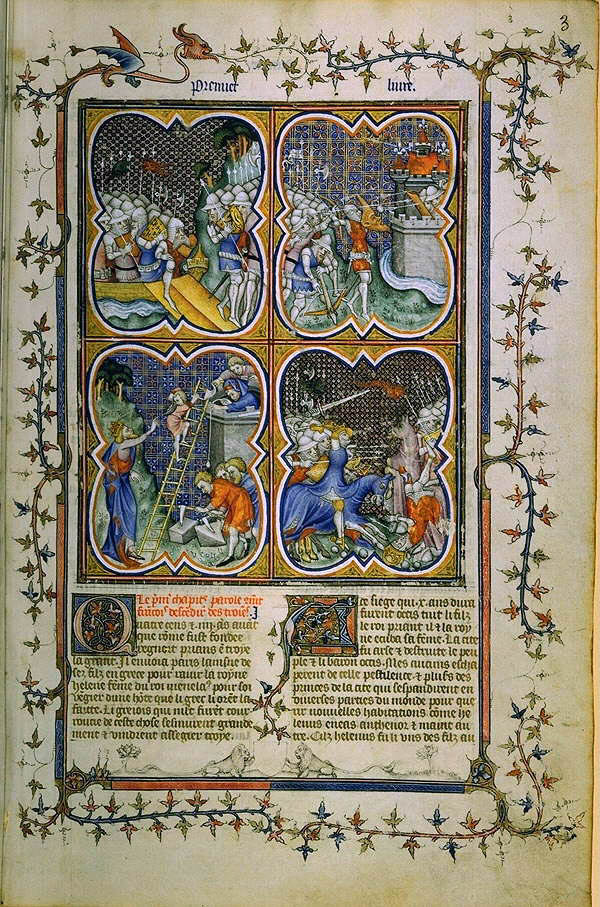 3
Premier
livre.
Le p̃mr̃ chapit̃ parole cõmt̃
francois descẽdir̃ des troiẽs.
uatre cens et iiij. ans auãt
que rõme fust fondee
regnoit prians ẽ troye
la grant. Il envoia paris lainsne de
ses filz en grece pour ravir la royne
helene fẽme du roi menelaˢ pour soi
vẽgier dune hõte que li grec li orẽt ia
faitte. Li gregois qui mlt̃ furẽt cour
roucie de ceste chose sesmurent grande
ment & vindrent assegier troye.
ce siege qui .x. ans dura
furent occis tuit li filz
le roi priant il & la roy
ne ecuba sa fẽme. La cite
fu arse et destruite le peu
ple & li baron occis. Mes aucuns escha
perent de celle pestilence & plusʳs des
princes de la cite qui sespandirent en
diverses parties du monde pour que
rir nouvelles habitations cõme he
lenus eneas anthenor & maint au
tre. Cilz helenus fu li uns des filz au